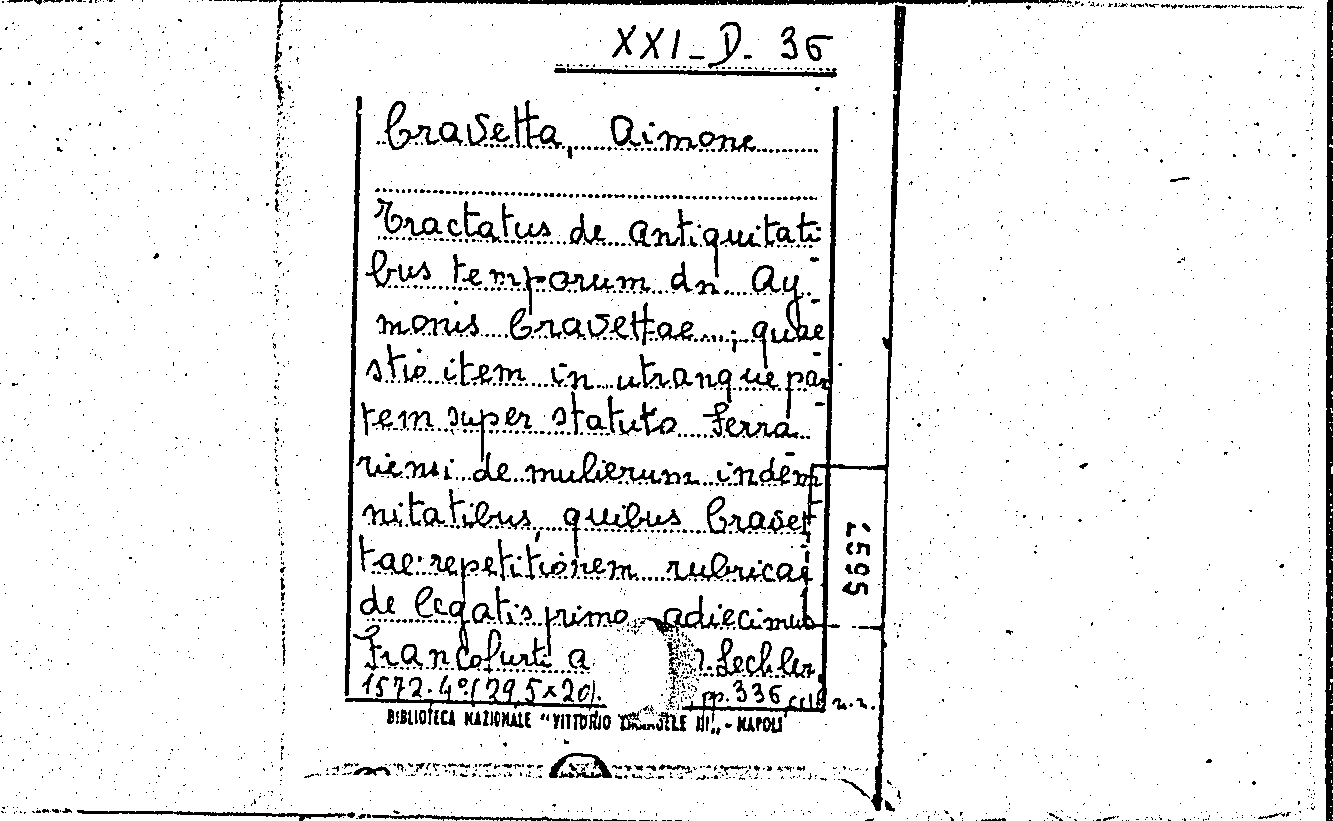 XXI-D. 36
Cravetta, Aimone
Tractatus de antiquitati
bus temporum dn. Ay-
monis Cravettae...; quae
stio item in utranque par
tem super statuto Ferra-
riensi de mulierum indem
nitatibus, quibus Cravet
tae repetitionem rubricae
de legatis primo adiecimus
Francofurti a Lechler,
1572. 4º (29,5x20). pp. 336, n.n.
BIBLIOTECA NAZIONALE "VITTORIO EMANUELE III„ - NAPOLI
2595